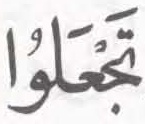 تَجْعَلُوا